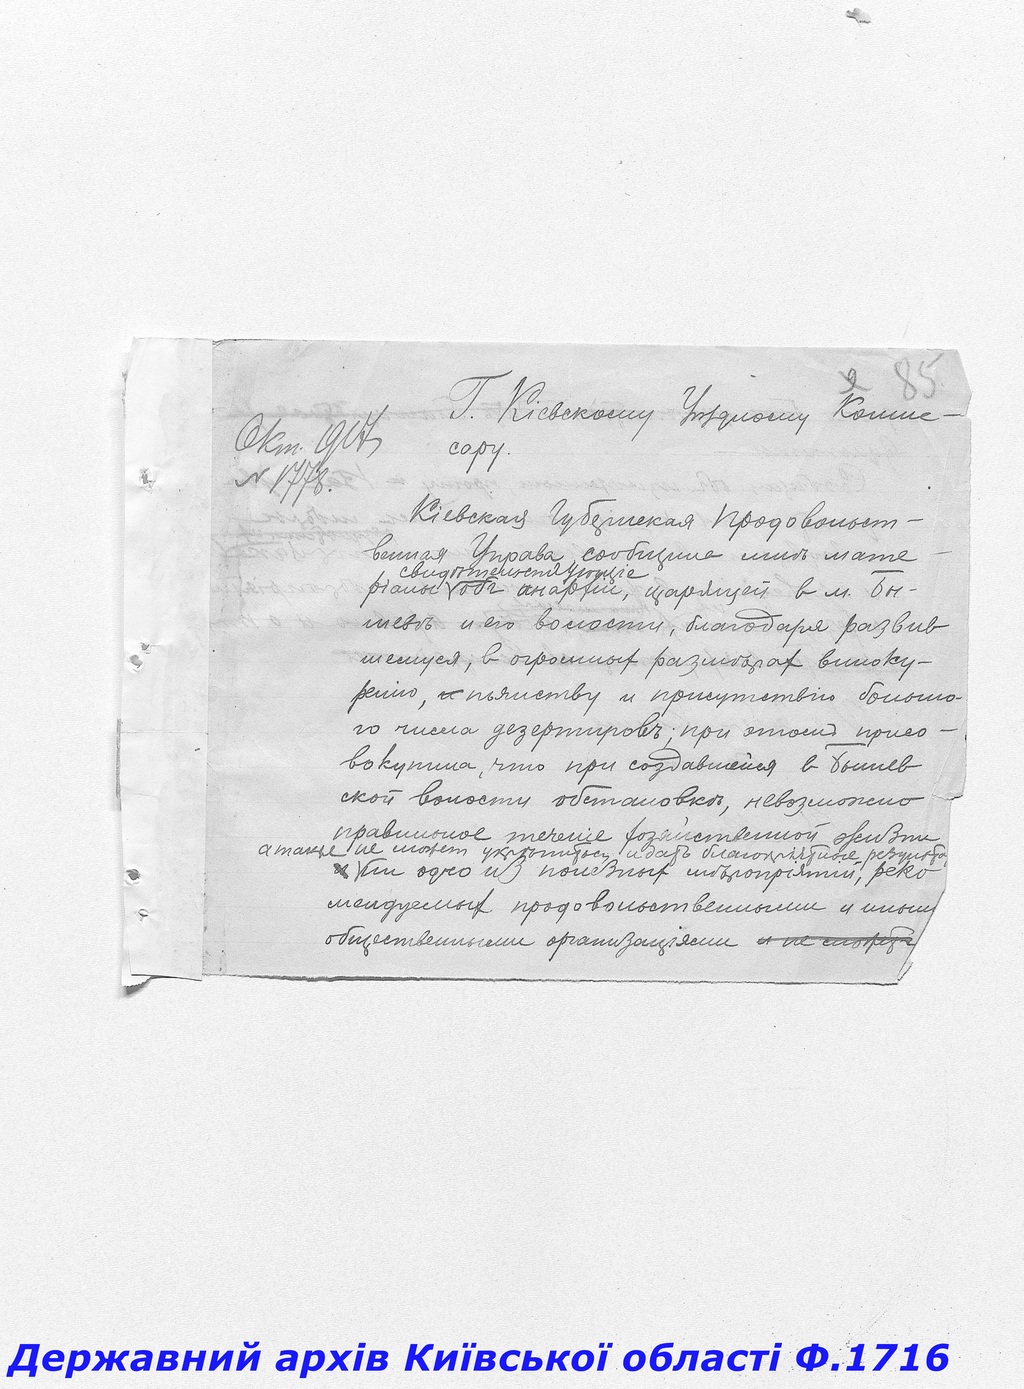 85
Г. Кіевскому Уѣздному Комис-
сару.
Окт. 1917
№ 1778.
Кіевская Губернская Продовольст-
венная Управа, сообщила мнѣ мате-
свидѣтельствующіе
ріалы объ анархіи, царящей в м. Бы-
шевѣ и его волости, благодаря развив
шемуся, в огромных размѣрах виноку-
ренію, пьянству и присутствію большо-
го числа дезертировъ; при этом присо-
вокупила, что при создавшейся в Бышев
ской волости обстановкѣ, невозможно
правильное теченіе хозяйственной жизни
а также не может укрѣпиться и дать благопріятные результаты
ни одно из полезных мѣропріятий, реко
мендуемых продовольственными и иными
общественными организаціями и не может
Державний архів Київської області Ф.1716